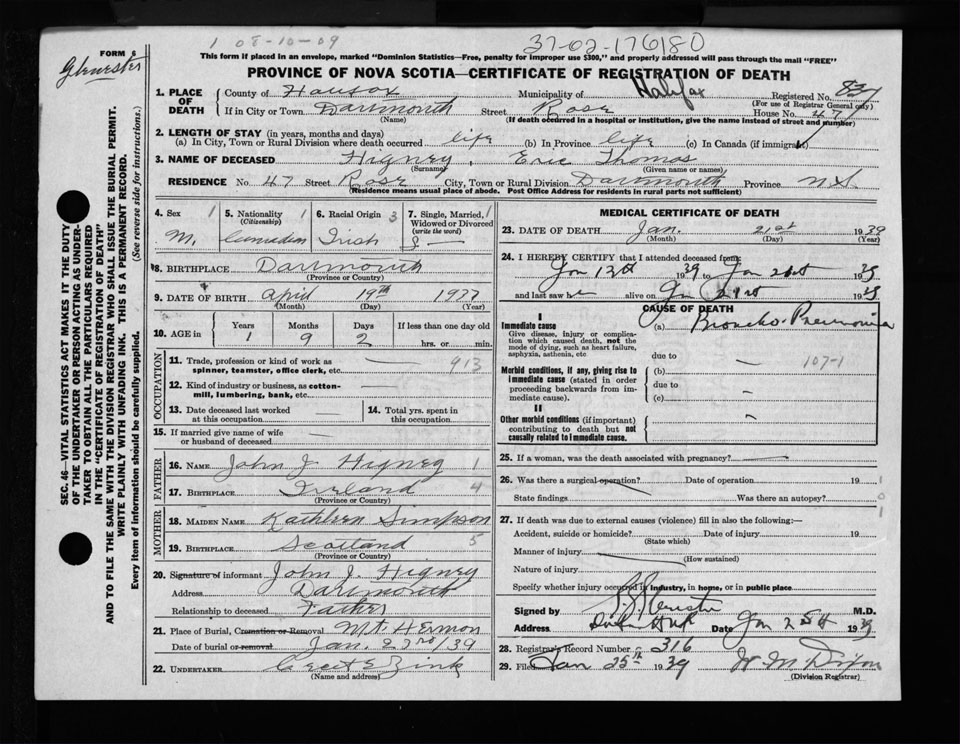 1 08-10-09
37-02-176180
FORM 6
Glenester
This form if placed in an envelope, marked "Dominion Statistics—Free, penalty for improper use $300," and properly addressed will pass through the mail "FREE"
PROVINCE OF NOVA SCOTIA—CERTIFICATE OF REGISTRATION OF DEATH
SEC. 46—VITAL STATISTICS ACT MAKES IT THE DUTY
OF THE UNDERTAKER OR PERSON ACTING AS UNDER-
TAKER TO OBTAIN ALL THE PARTICULARS REQUIRED
IN THE "CERTIFICATE OF REGISTRATION OF DEATH"
AND TO FILE THE SAME WITH THE DIVISION REGISTRAR WHO SHALL ISSUE THE BURIAL PERMIT.
WRITE PLAINLY WITH UNFADING INK. THIS IS A PERMANENT RECORD.
Every item of information should be carefully supplied. (See reverse side for instructions.)
1. PLACE OF DEATH County of Halifax Municipality of Halifax Registered No. 837
(For use of Registrar General only)
If in City or Town Dartmouth Street Rose House No. 47
(Name) (If death occurred in a hospital or institution, give the name instead of street and number)
2. LENGTH OF STAY (in years, months and days)
(a) In City, Town or Rural Division where death occurred life (b) In Province life (c) In Canada (if immigrant)
3. NAME OF DECEASED Higney, Eric Thomas
(Surname) (Given name or names)
RESIDENCE No. 47 Street Rose City, Town or Rural Division Dartmouth Province N.S.
(Residence means usual place of abode. Post Office Address for residents in rural parts not sufficient)
4. Sex 1 M.
5. Nationality 1 (Citizenship) Canadian
6. Racial Origin 3 Irish
7. Single, Married, 1 Widowed or Divorced (write the word) S —
8. BIRTHPLACE Dartmouth
(Province or Country)
9. DATE OF BIRTH April 19th 1937
(Month) (Day) (Year)
10. AGE in Years 1 Months 9 Days 2 If less than one day old hrs. or min.
OCCUPATION
11. Trade, profession or kind of work as spinner, teamster, office clerk, etc. — 913
12. Kind of industry or business, as cotton-mill, lumbering, bank, etc. —
13. Date deceased last worked at this occupation —
14. Total yrs. spent in this occupation
15. If married give name of wife or husband of deceased —
FATHER
16. NAME John J Higney 1
17. BIRTHPLACE Ireland 4
(Province or Country)
MOTHER
18. MAIDEN NAME Kathleen Simpson
19. BIRTHPLACE Scotland 5
(Province or Country)
20. Signature of informant John J. Higney
Address Dartmouth
Relationship to deceased Father
21. Place of Burial, Cremation or Removal Mt Hermon
Date of burial or removal Jan. 23rd/39
22. UNDERTAKER Cecil E Zink
(Name and address)
MEDICAL CERTIFICATE OF DEATH
23. DATE OF DEATH Jan. 21st 1939
(Month) (Day) (Year)
24. I HEREBY CERTIFY that I attended deceased from:
Jan 13th 1939 to Jan 21st 1939
and last saw h alive on Jan 21st 1939
CAUSE OF DEATH
I
Immediate cause (a) Broncho-Pneumonia
Give disease, injury or complication which caused death, not the mode of dying, such as heart failure, asphyxia, asthenia, etc
due to 107-1
Morbid conditions, if any, giving rise to immediate cause (stated in order proceeding backwards from immediate cause). (b) —
due to
(c) —
II
Other morbid conditions (if important) contributing to death but not causally related to immediate cause.
25. If a woman, was the death associated with pregnancy? —
26. Was there a surgical operation? Date of operation 19
State findings Was there an autopsy?
27. If death was due to external causes (violence) fill in also the following:—
Accident, suicide or homicide? Date of injury 19
(State which)
Manner of injury
(How sustained)
Nature of injury
Specify whether injury occurred in industry, in home, or in public place
Signed by M.D.
Address Date Jan 1939
28. Registrar's Record Number 316
29. Filed Jan 25th 1939 W. M. Dixon
(Division Registrar)